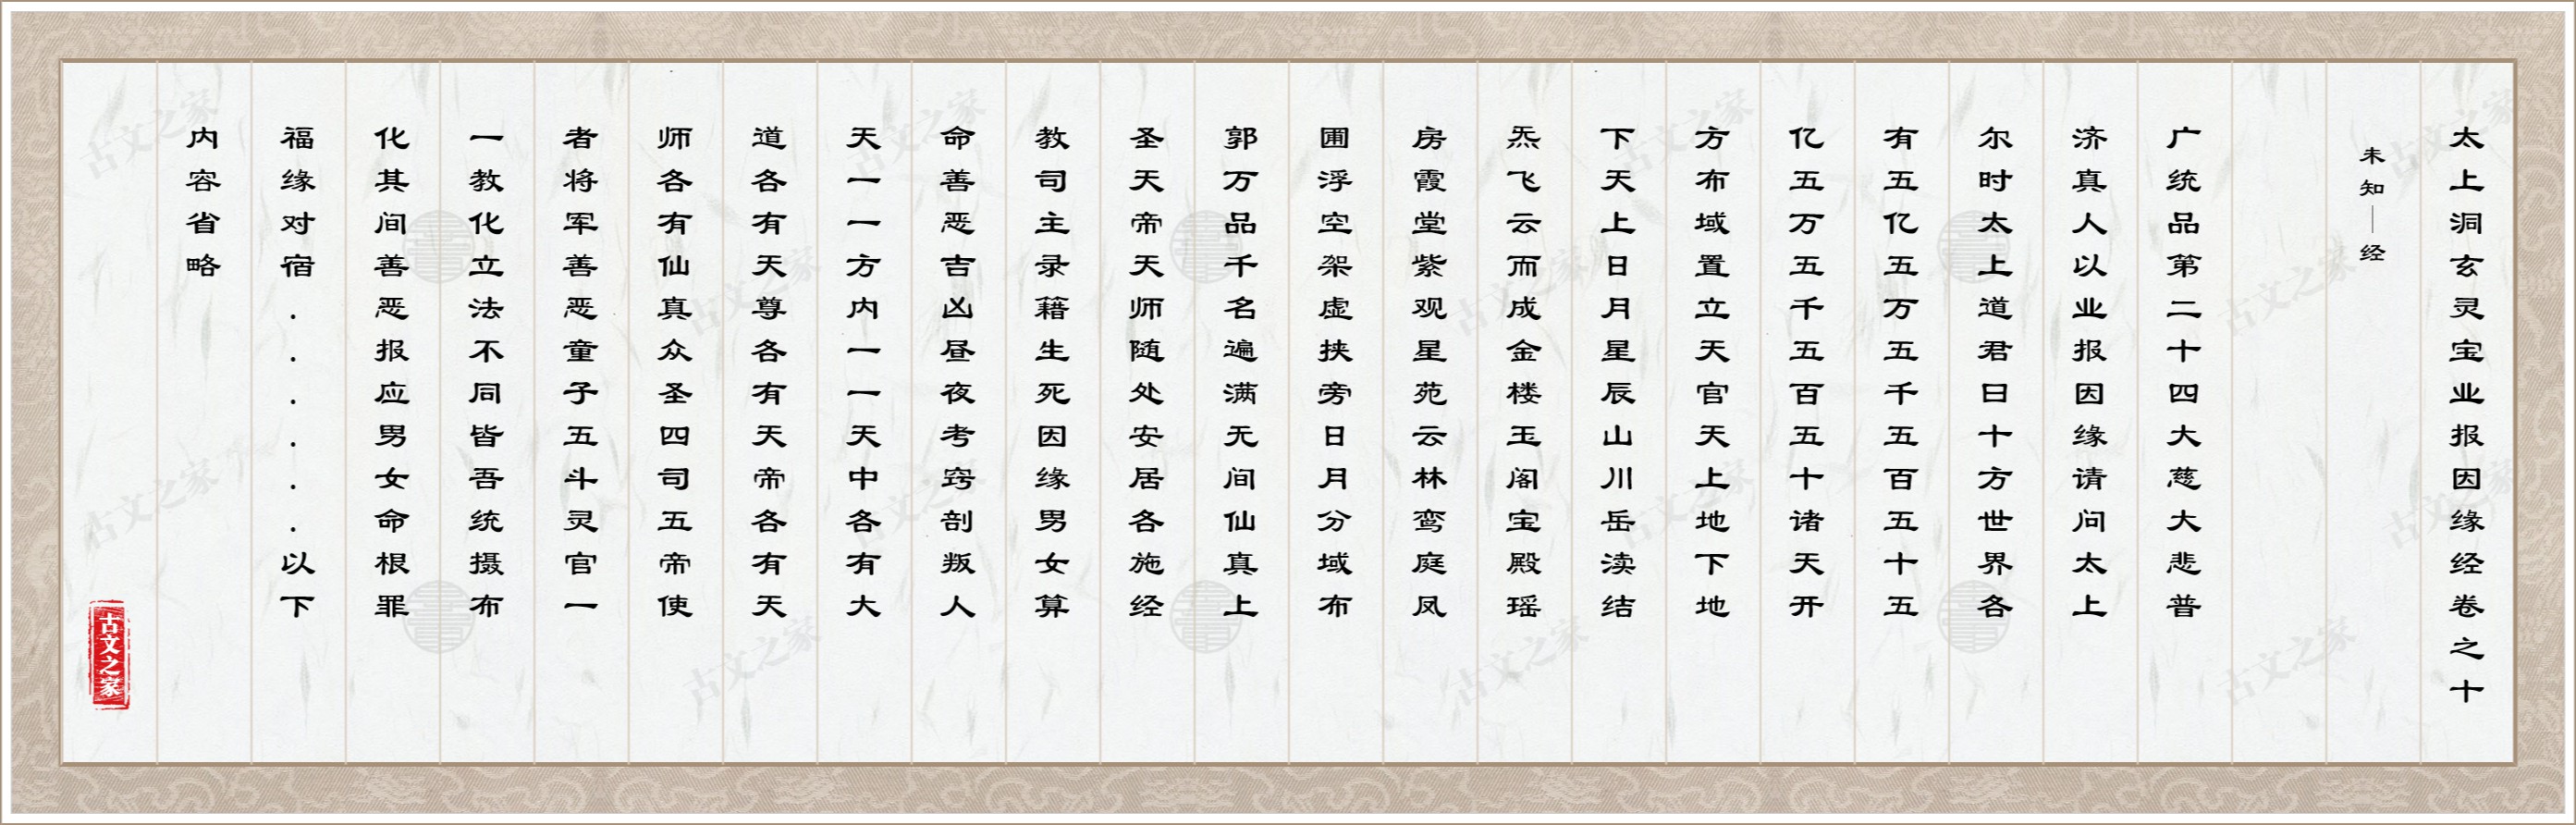 太上洞玄灵宝业报因缘经卷之十
未知｜经
广统品第二十四大慈大悲普
济真人以业报因缘请问太上
尔时太上道君曰十方世界各
有五亿五万五千五百五十五
亿五万五千五百五十诸天开
方布域置立天官天上地下地
下天上日月星辰山川岳渎结
炁飞云而成金楼玉阁宝殿瑶
房霞堂紫观星苑云林鸾庭凤
圃浮空架虚挟旁日月分域布
郭万品千名遍满无间仙真上
圣天帝天师随处安居各施经
教司主录籍生死因缘男女算
命善恶吉凶昼夜考窍剖叛人
天一一方内一一天中各有大
道各有天尊各有天帝各有天
师各有仙真众圣四司五帝使
者将军善恶童子五斗灵官一
一教化立法不同皆吾统摄布
化其间善恶报应男女命根罪
福缘对宿......以下
内容省略
古文之家